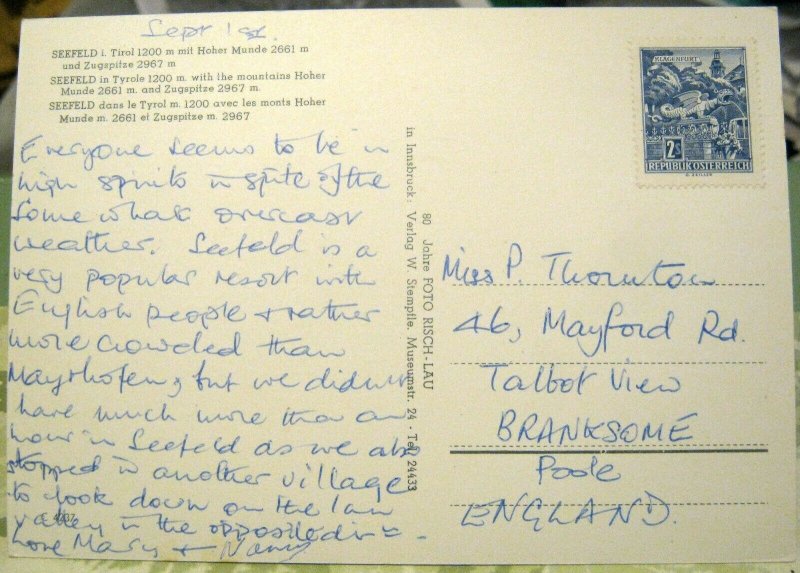 Sept 1st.
SEEFELD i. Tirol 1200 m mit Hoher Munde 2661 m
und Zugspitze 2967 m
SEEFELD in Tyrole 1200 m. with the mountains Hoher
Munde 2661 m. and Zugspitze 2967 m.
SEEFELD dans le Tyrol m. 1200 avec les monts Hoher
Munde m. 2661 et Zugspitze m. 2967
Everyone seems to be in
high spirits in spite of the
somewhat overcast
weather. Seefeld is a
very popular resort with
English people & rather
more crowded than
Mayrhofen, but we didn't
have much more than an
hour in Seefeld as we also
stopped in another village
to look down on the Inn
valley in the opposite
Love Mary & Nancy
80 Jahre FOTO RISCH-LAU
in Innsbruck: Verlag W. Stempfle. Museumstr. 24 - Tel. 24433
KLAGENFURT
2S
REPUBLIK ÖSTERREICH
Miss P. Thornton
46, Mayford Rd.
Talbot View
BRANKSOME
Poole
ENGLAND.